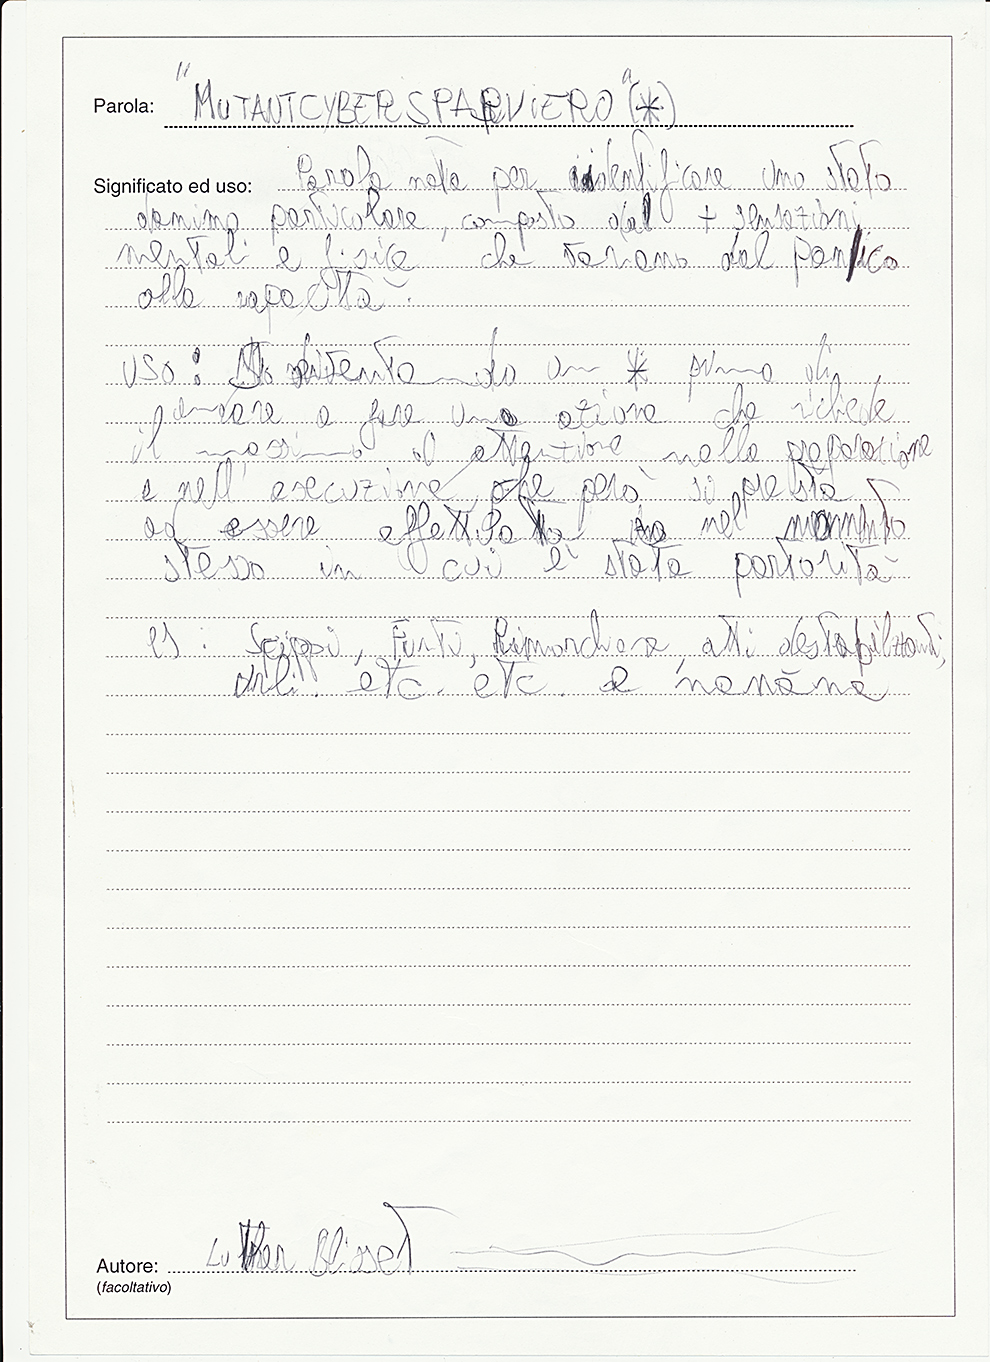 Parola: "MUTANTCYBERSPARVIERO" (*)
Significato ed uso: Parola nata per identificare uno stato
danimo particolare, composto dal + sensazioni
mentali e fisice che variano dal panico
alla rapacità.
USO: Si diventa un * prima di
pensare a fare una azione che richiede
il massimo d'attenzione nella preparazione
e nell'esecuzione, che però si presta
ad essere nel momento
stesso in cui è stata partorita
es: Scippi, Furti, Rimorchiare, atti destabilizzanti,
etc. etc. e nanàna
Autore: Luther Blisset
(facoltativo)